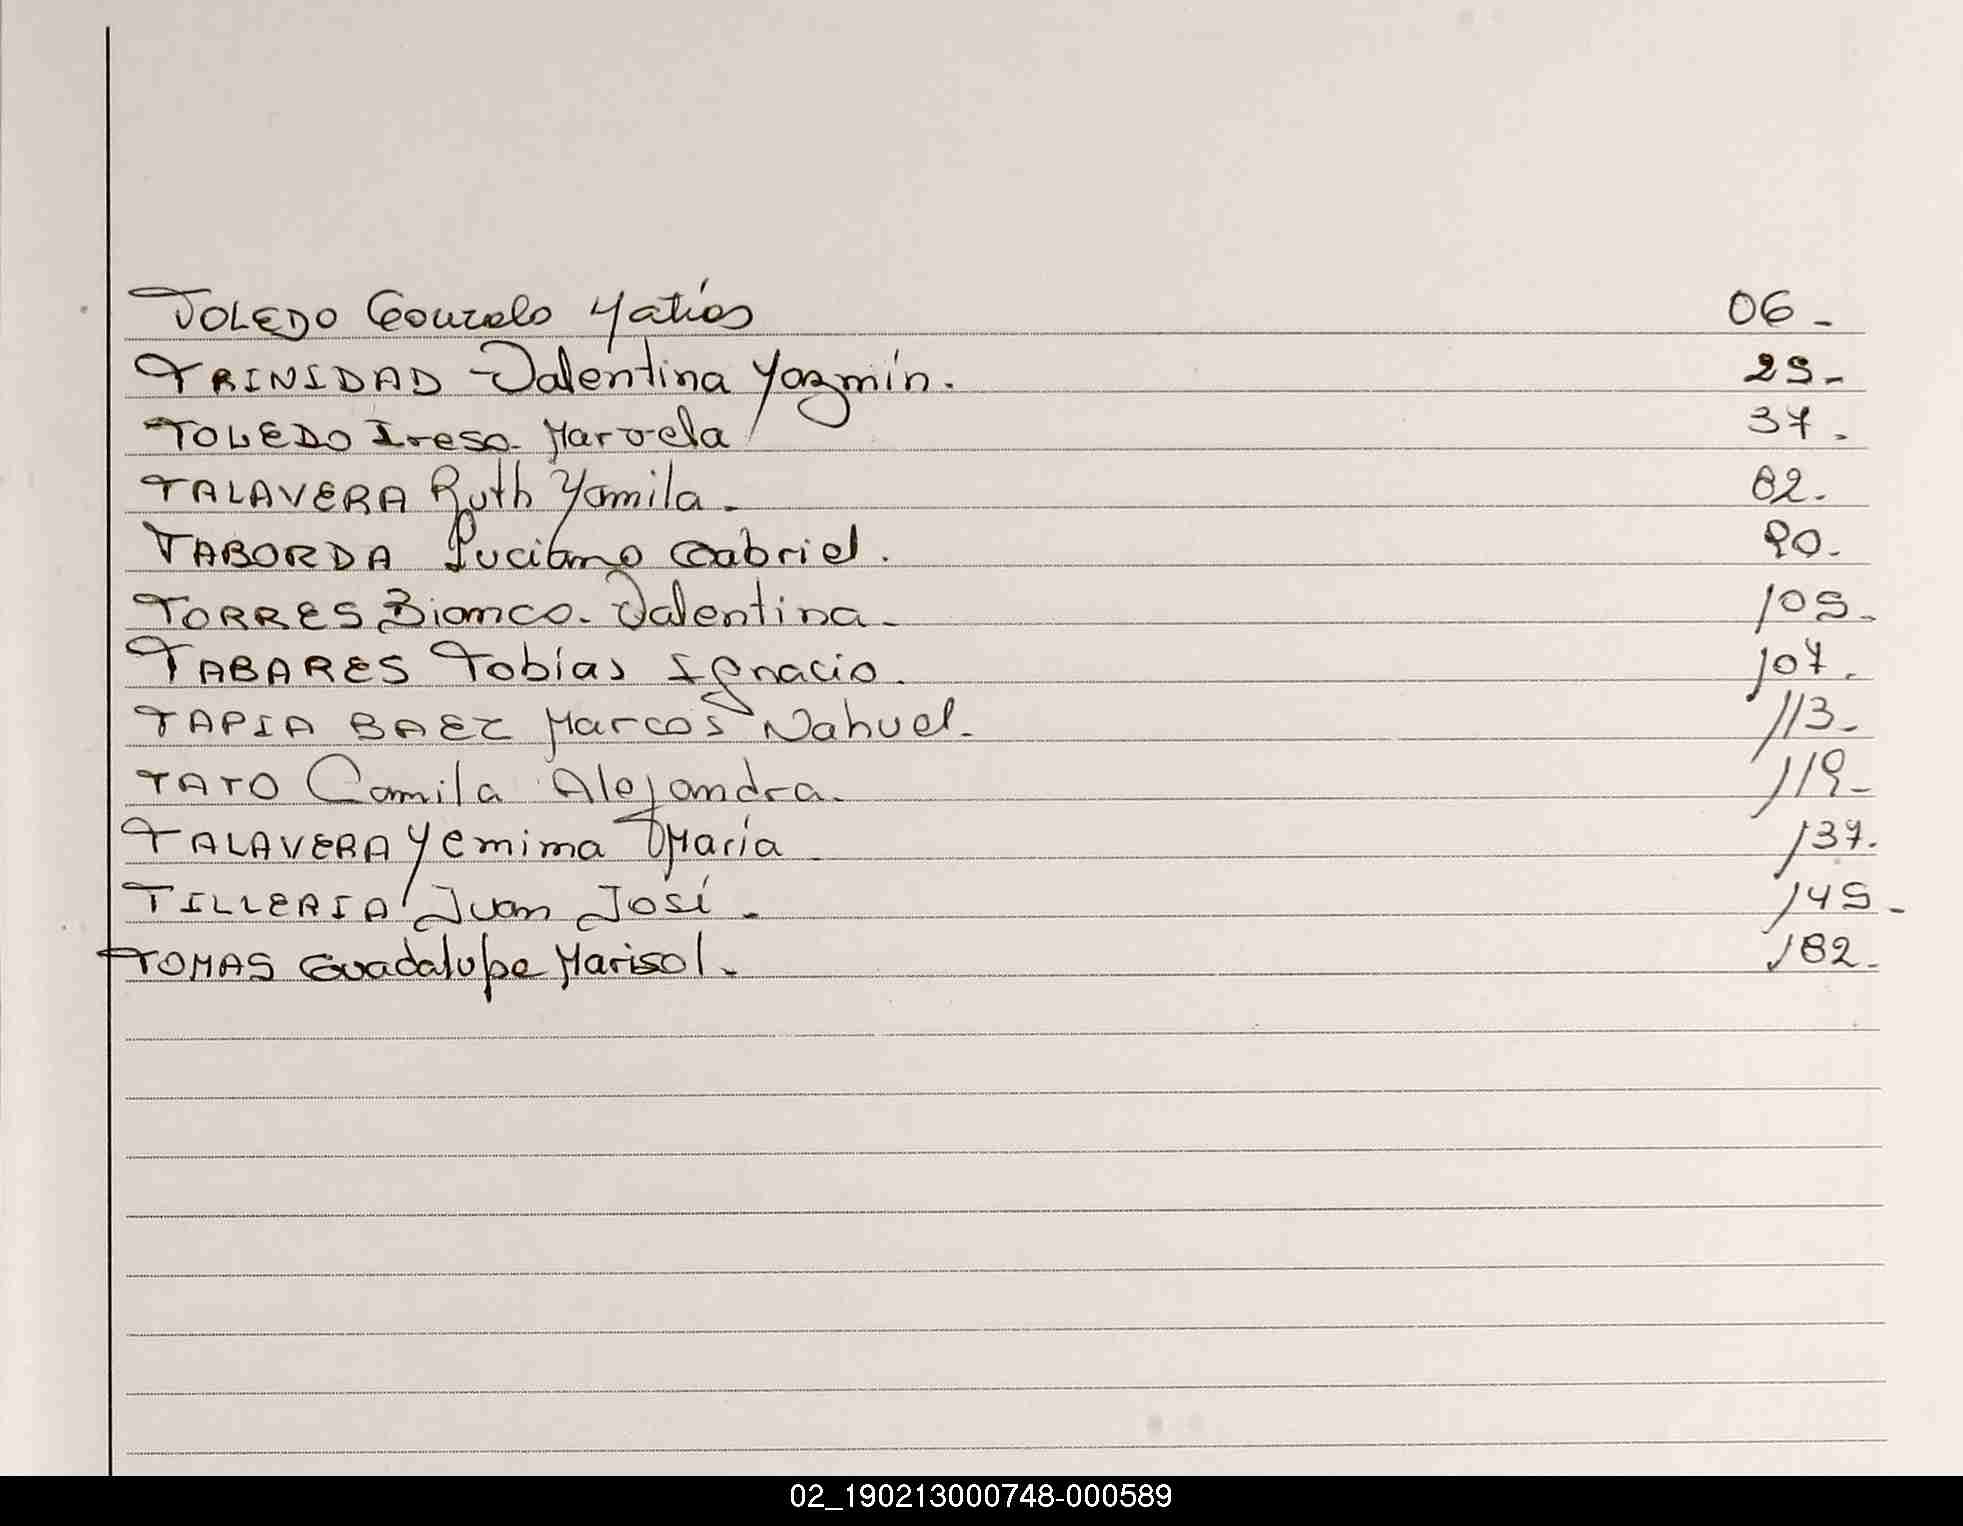 TOLEDO Gonzalo Matías 06-
TRINIDAD Valentina Yazmín. 25-
TOLEDO Marcela 37.
TALAVERA Ruth Yamila. 82.
TABORDA Luciano Gabriel. 90.
TORRES Bianca Valentina. 105-
TABARES Tobías Ignacio. 107.
TAPIA BAEZ Marcos Nahuel. 113-
TATO Camila Alejandra. 119-
TALAVERA Yemima María 137.
TILLERIA Juan José. 145-
TOMAS Guadalupe Marisol. 182-
02_190213000748-000589